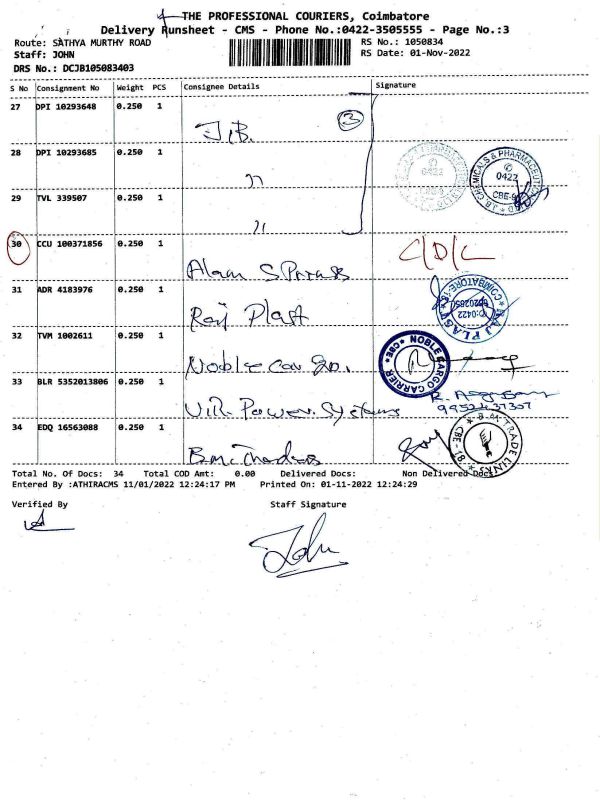 THE PROFESSIONAL COURIERS, Coimbatore
Delivery Runsheet - CMS - Phone No.:0422-3505555 - Page No.:3
Route: SATHYA MURTHY ROAD
RS No.: 1050834
Staff: JOHN
RS Date: 01-Nov-2022
DRS No.: DCJB105083403
S No Consignment No Weight PCS Consignee Details Signature
27 DPI 10293648 0.250 1
J.B. 3
28 DPI 10293685 0.250 1
"
29 TVL 339507 0.250 1
"
30 CCU 100371856 0.250 1
C/D/L
31 ADR 4183976 0.250 1
Raj Plast
32 TVM 1002611 0.250 1
NOBLE CARGO CARRIER * CBE *
33 BLR 5352013806 0.250 1
Power Systems
9952437307
34 EDQ 16563088 0.250 1
B.M. TRADE LINKS * CBE-18 *
Total No. Of Docs: 34 Total COD Amt: 0.00 Delivered Docs: Non Delivered Docs
Entered By :ATHIRACMS 11/01/2022 12:24:17 PM Printed On: 01-11-2022 12:24:29
Verified By Staff Signature
John